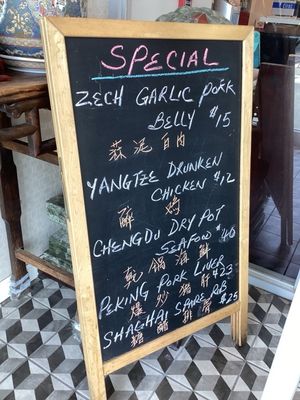 SPECIAL
ZECH GARLIC PORK
BELLY $15
蒜泥白肉
YANGTZE DRUNKEN
CHICKEN $12
醉鸡
CHENGDU DRY POT
SEAFOOD $40
乾锅海鲜
PEKING PORK LIVER
爆炒猪肝 $23
SHANGHAI SPARE RIB
糖醋排骨 $25